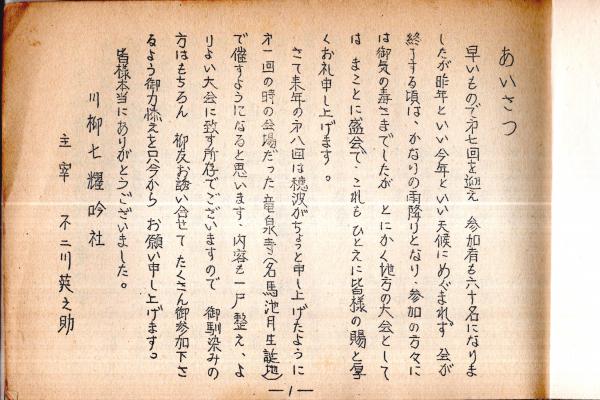 あいさつ
早いもので才七回を迎え 参加者も六十名になりま
したが昨年といい今年といい天候にめぐまれず 会が
終了する頃は、かなりの雨降りとなり、参加の方々に
は御気の毒さまでしたが とにかく地方の大会として
は まことに盛会で、これも ひとえに皆様の賜と厚
くお礼申し上げます。
さて来年の才八回は穂波がちょっと申し上げたように
才一回の時の会場だった竜泉寺(名馬池月生誕地)
で催すようになると思います、内容も一戸整え、よ
りよい大会に致す所存でございますので 御馴染みの
方はもちろん 柳友お誘い合せて たくさん御参加下さ
るよう御力添えを只今から お願い申し上げます。
皆様本当にありがとうございました。
川柳七耀吟社
主宰 不二川英之助
—1—